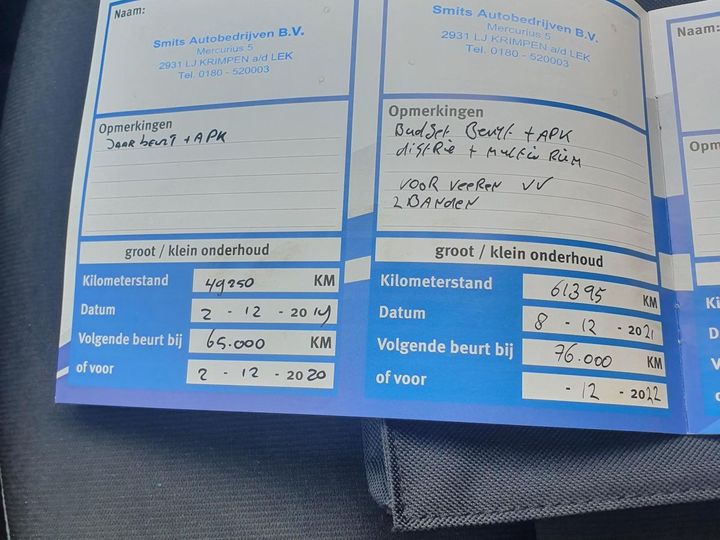 Naam:
Smits Autobedrijven B.V.
Mercurius 5
2931 LJ KRIMPEN a/d LEK
Tel. 0180 - 520003
Opmerkingen
Jaarbeurt + APK
groot / klein onderhoud
Kilometerstand 49250 KM
Datum 2 - 12 - 2019
Volgende beurt bij 65.000 KM
of voor 2 - 12 - 2020
Smits Autobedrijven B.V.
Mercurius 5
2931 LJ KRIMPEN a/d LEK
Tel. 0180 - 520003
Opmerkingen
Budget Beurt + APK
distRie + multie Riem
VOOR VeeReN VV
2 BANDeN
groot / klein onderhoud
Kilometerstand 61395 KM
Datum 8 - 12 - 2021
Volgende beurt bij 76.000 KM
of voor - 12 - 2022
Naam:
Opm
Ki
D
V
o